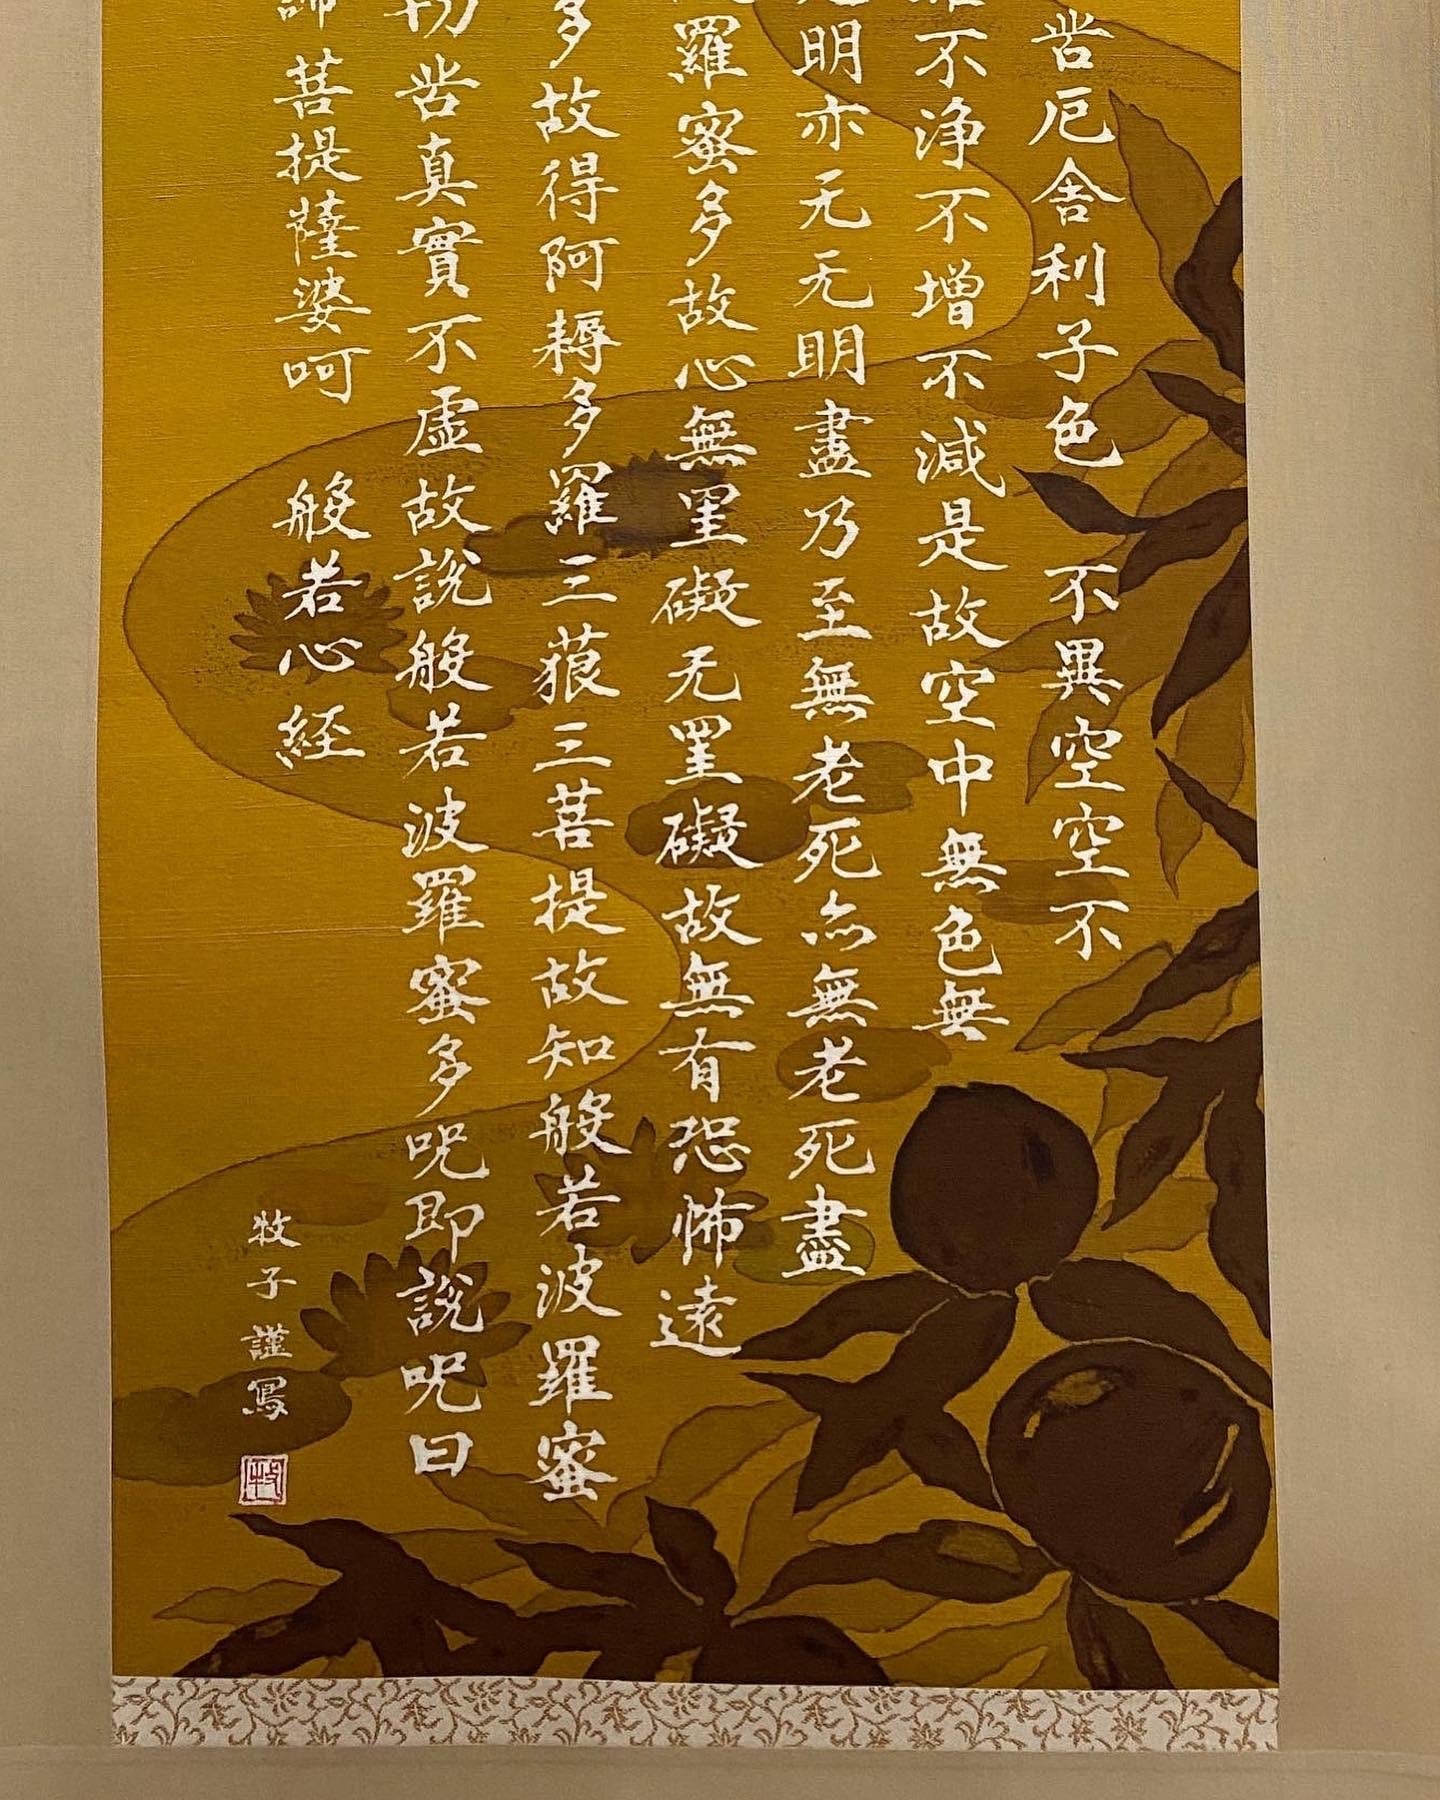 苦厄舎利子色不異空空不
不浄不増不減是故空中無色無
明亦无无明盡乃至無老死亦無老死盡
羅蜜多故心無罣礙无罣礙故無有恐怖遠
多故得阿耨多羅三藐三菩提故知般若波羅蜜
切苦真實不虚故説般若波羅蜜多呪即説呪曰
諦菩提薩婆呵 般若心経
牧子謹寫
牧